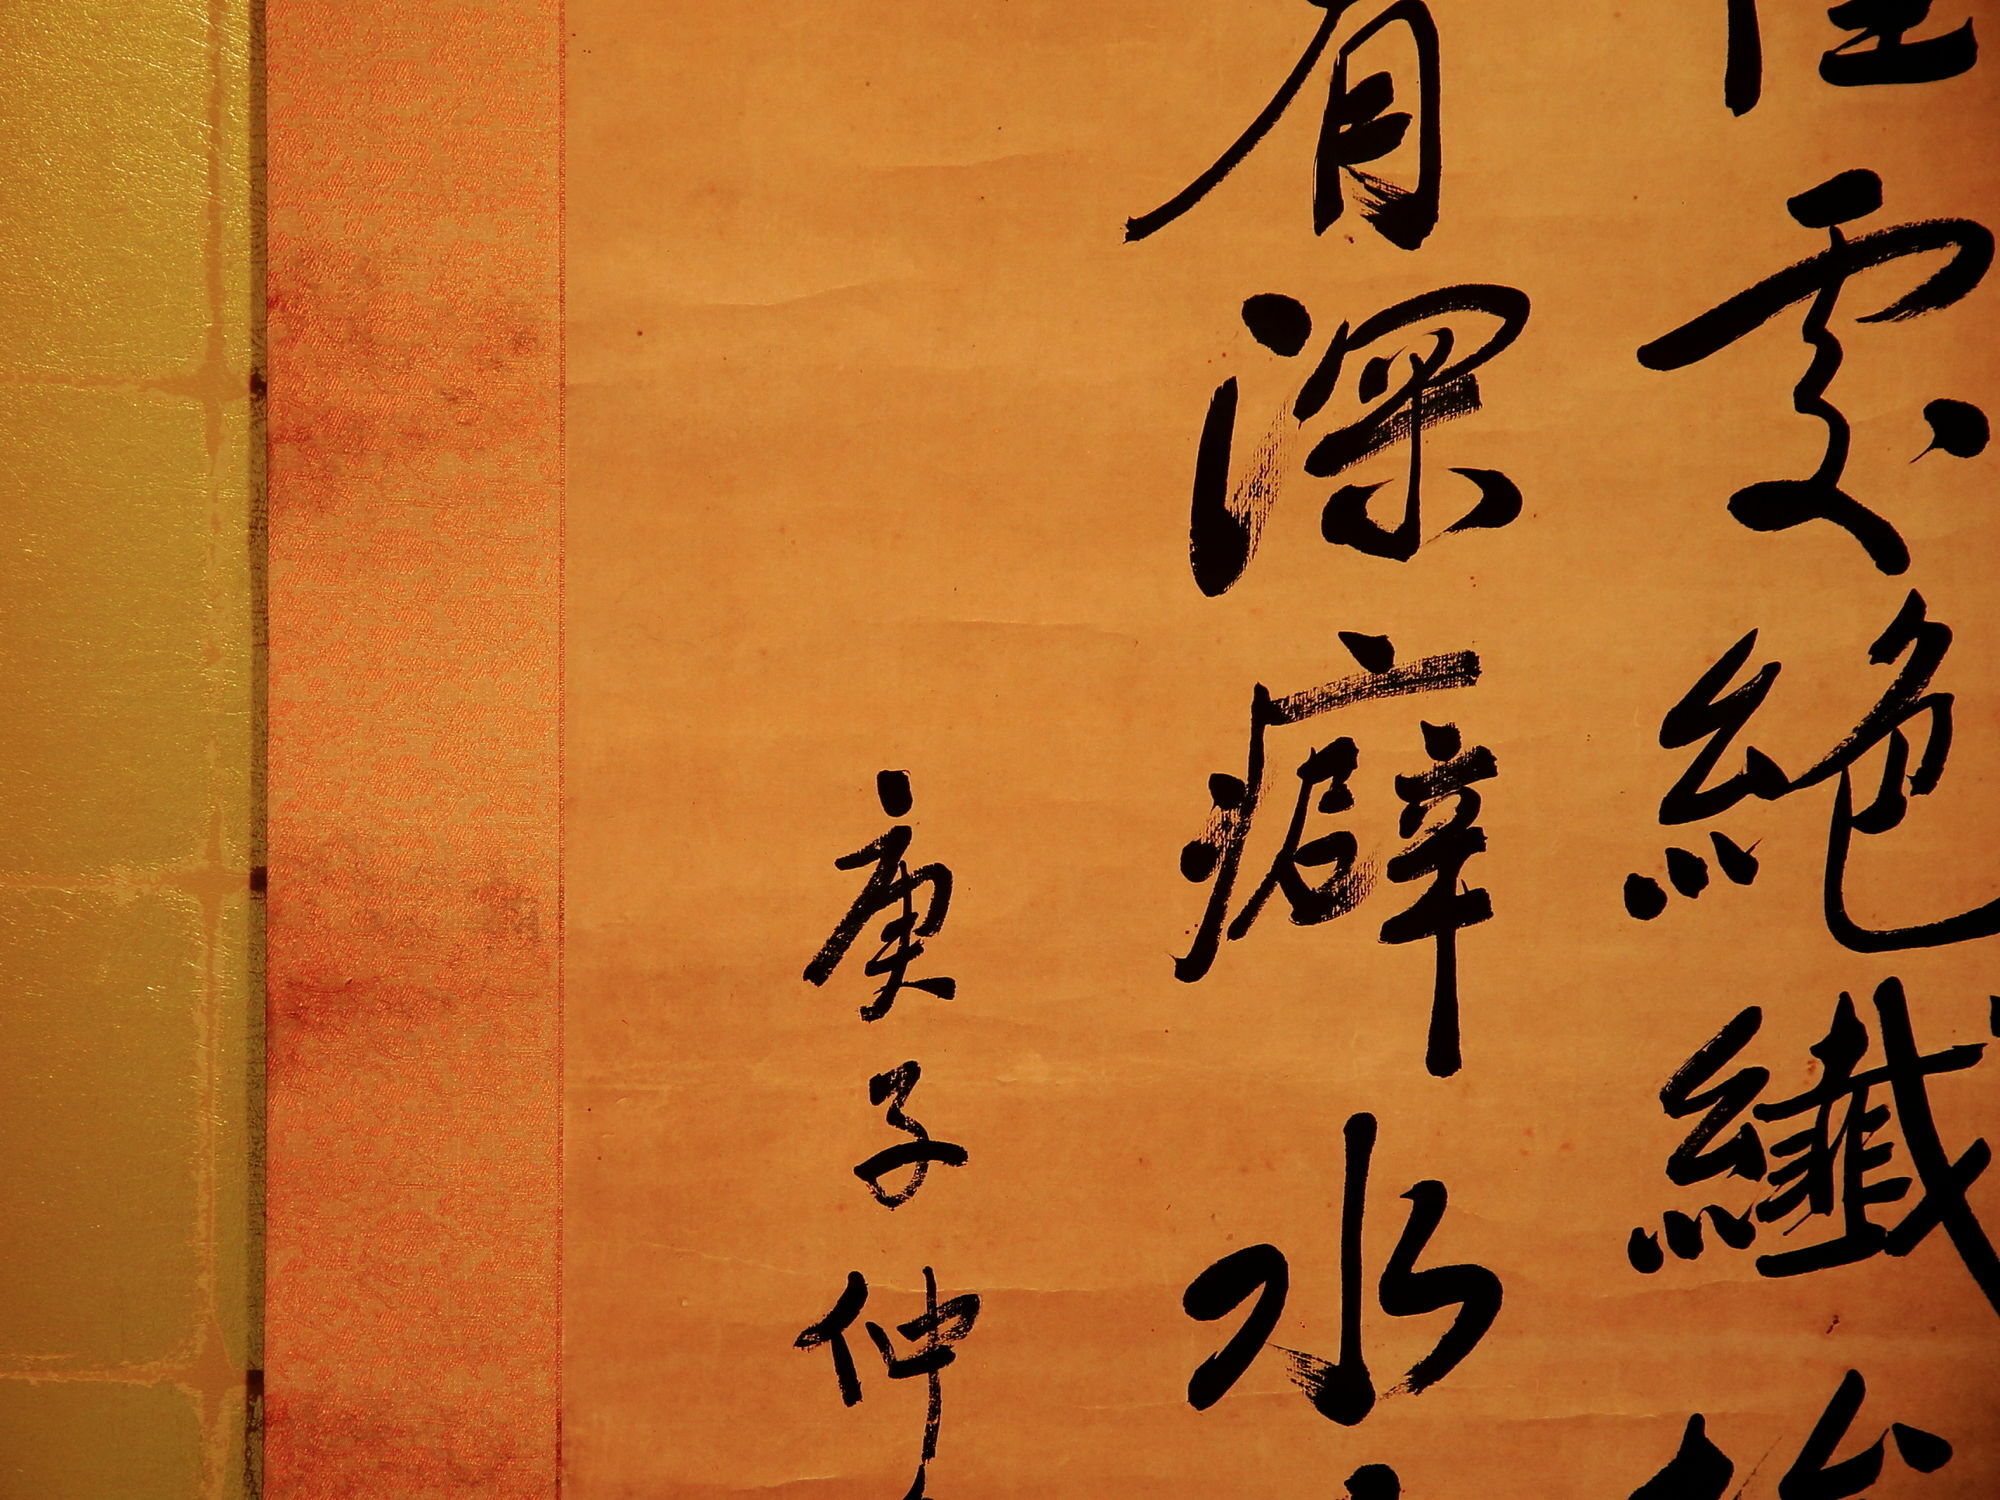 處絶纖
有深癖水
庚子仲